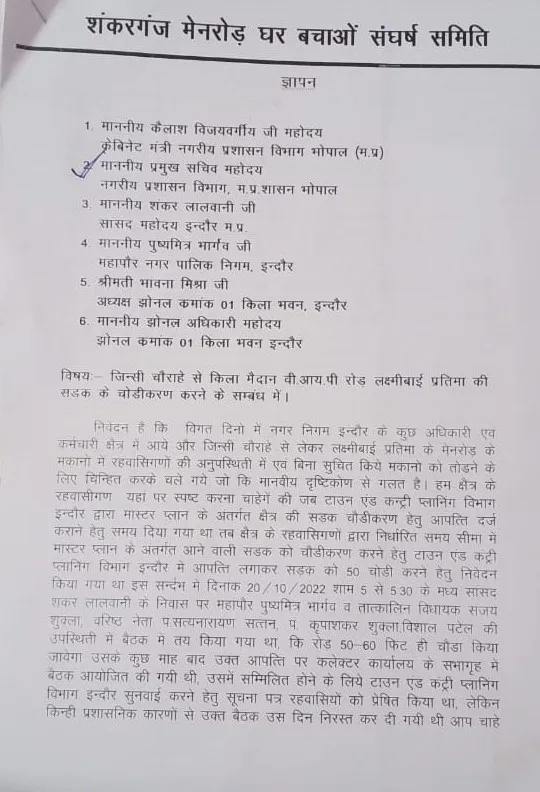 शंकरगंज मेनरोड़ घर बचाओं संघर्ष समिति
ज्ञापन
1. माननीय कैलाश विजयवर्गीय जी महोदय
केबिनेट मंत्री नगरीय प्रशासन विभाग भोपाल (म.प्र)
2. माननीय प्रमुख सचिव महोदय
नगरीय प्रशासन विभाग, म.प्र.शासन भोपाल
3. माननीय शंकर लालवानी जी
सासद महोदय इन्दौर म.प्र.
4. माननीय पुष्यमित्र भार्गव जी
महापौर नगर पालिक निगम, इन्दौर
5. श्रीमती भावना मिश्रा जी
अध्यक्ष झोनल कमांक 01 किला भवन, इन्दौर
6. माननीय झोनल अधिकारी महोदय
झोनल कमांक 01 किला भवन इन्दौर
विषयः– जिन्सी चौराहे से किला मैदान वी.आय.पी रोड़ लक्ष्मीबाई प्रतिमा की
सडक के चोडीकरण करने के सम्बंध में।
निवेदन है कि विगत दिनो में नगर निगम इन्दौर के कुछ अधिकारी एव
कर्मचारी क्षेत्र में आये और जिन्सी चौराहे से लेकर लक्ष्मीबाई प्रतिमा के मेनरोड़ के
मकानो में रहवासिगणों की अनुपस्थिती में एव बिना सुचित किये मकानो को तोडने के
लिए चिन्हित करके चले गये जो कि मानवीय दृष्टिकोण से गलत है। हम क्षेत्र के
रहवासीगण यहां पर स्पष्ट करना चाहेगें की जब टाउन एंड कन्ट्री प्लानिंग विभाग
इन्दौर द्वारा मास्टर प्लान के अंतर्गत क्षेत्र की सडक चौडीकरण हेतु आपत्ति दर्ज
कराने हेतु समय दिया गया था तब क्षेत्र के रहवासिगणों द्वारा निर्धारित समय सीमा में
मास्टर प्लान के अंतर्गत आने वाली सडक को चौडीकरण करने हेतु टाउन एंड कंट्री
प्लानिंग विभाग इन्दौर में आपत्ति लगाकर सड़क को 50 चोड़ी करने हेतु निवेदन
किया गया था इस सन्दर्भ मे दिनाक 20/10/2022 शाम 5 से 5.30 के मध्य सांसद
शंकर लालवानी के निवास पर महापौर पुष्यमित्र भार्गव व तात्कालिन विधायक संजय
शुक्ला, वरिष्ठ नेता प.सत्यनारायण सत्तन, पं. कृपाशकर शुक्ला,विशाल पटेल की
उपस्थिती में बैठक मे तय किया गया था, कि रोड़ 50–60 फिट ही चौडा किया
जावेगा उसके कुछ माह बाद उक्त आपत्ति पर कलेक्टर कार्यालय के सभागृह में
बैठक आयोजित की गयी थी, उसमें सम्मिलित होने के लिये टाउन एंड कंट्री प्लानिग
विभाग इन्दौर सुनवाई करने हेतु सूचना पत्र रहवासियों को प्रेषित किया था, लेकिन
किन्ही प्रशासनिक कारणों से उक्त बैठक उस दिन निरस्त कर दी गयी थी आप चाहे